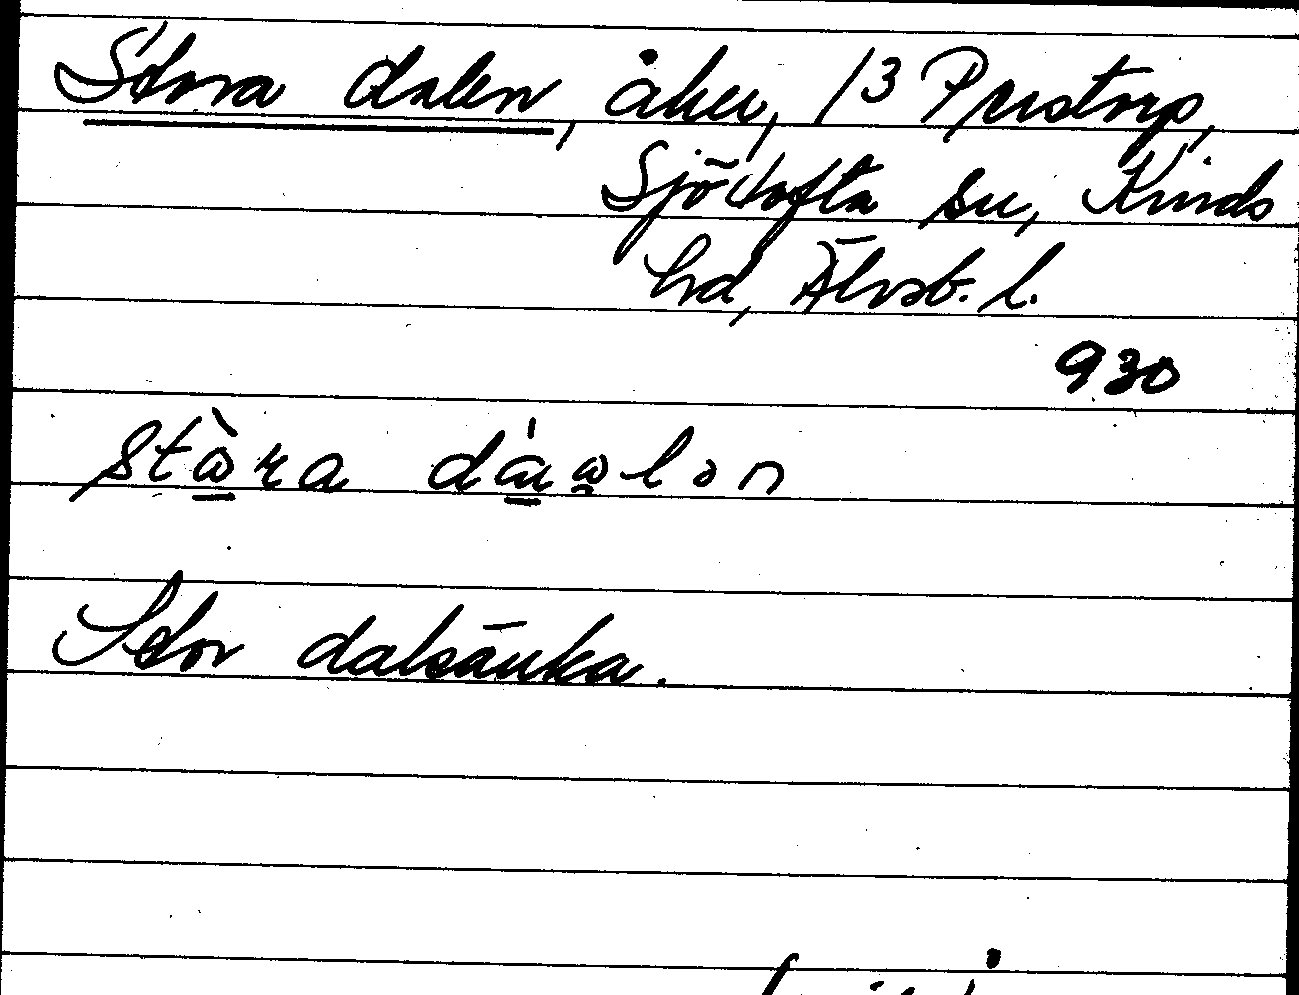 Stora dalen, åker, 13 Prestorp,
Sjötofta sn, Kinds
hd, Älvsb. l.
930
stàra dáalən
Stor dalsänka.